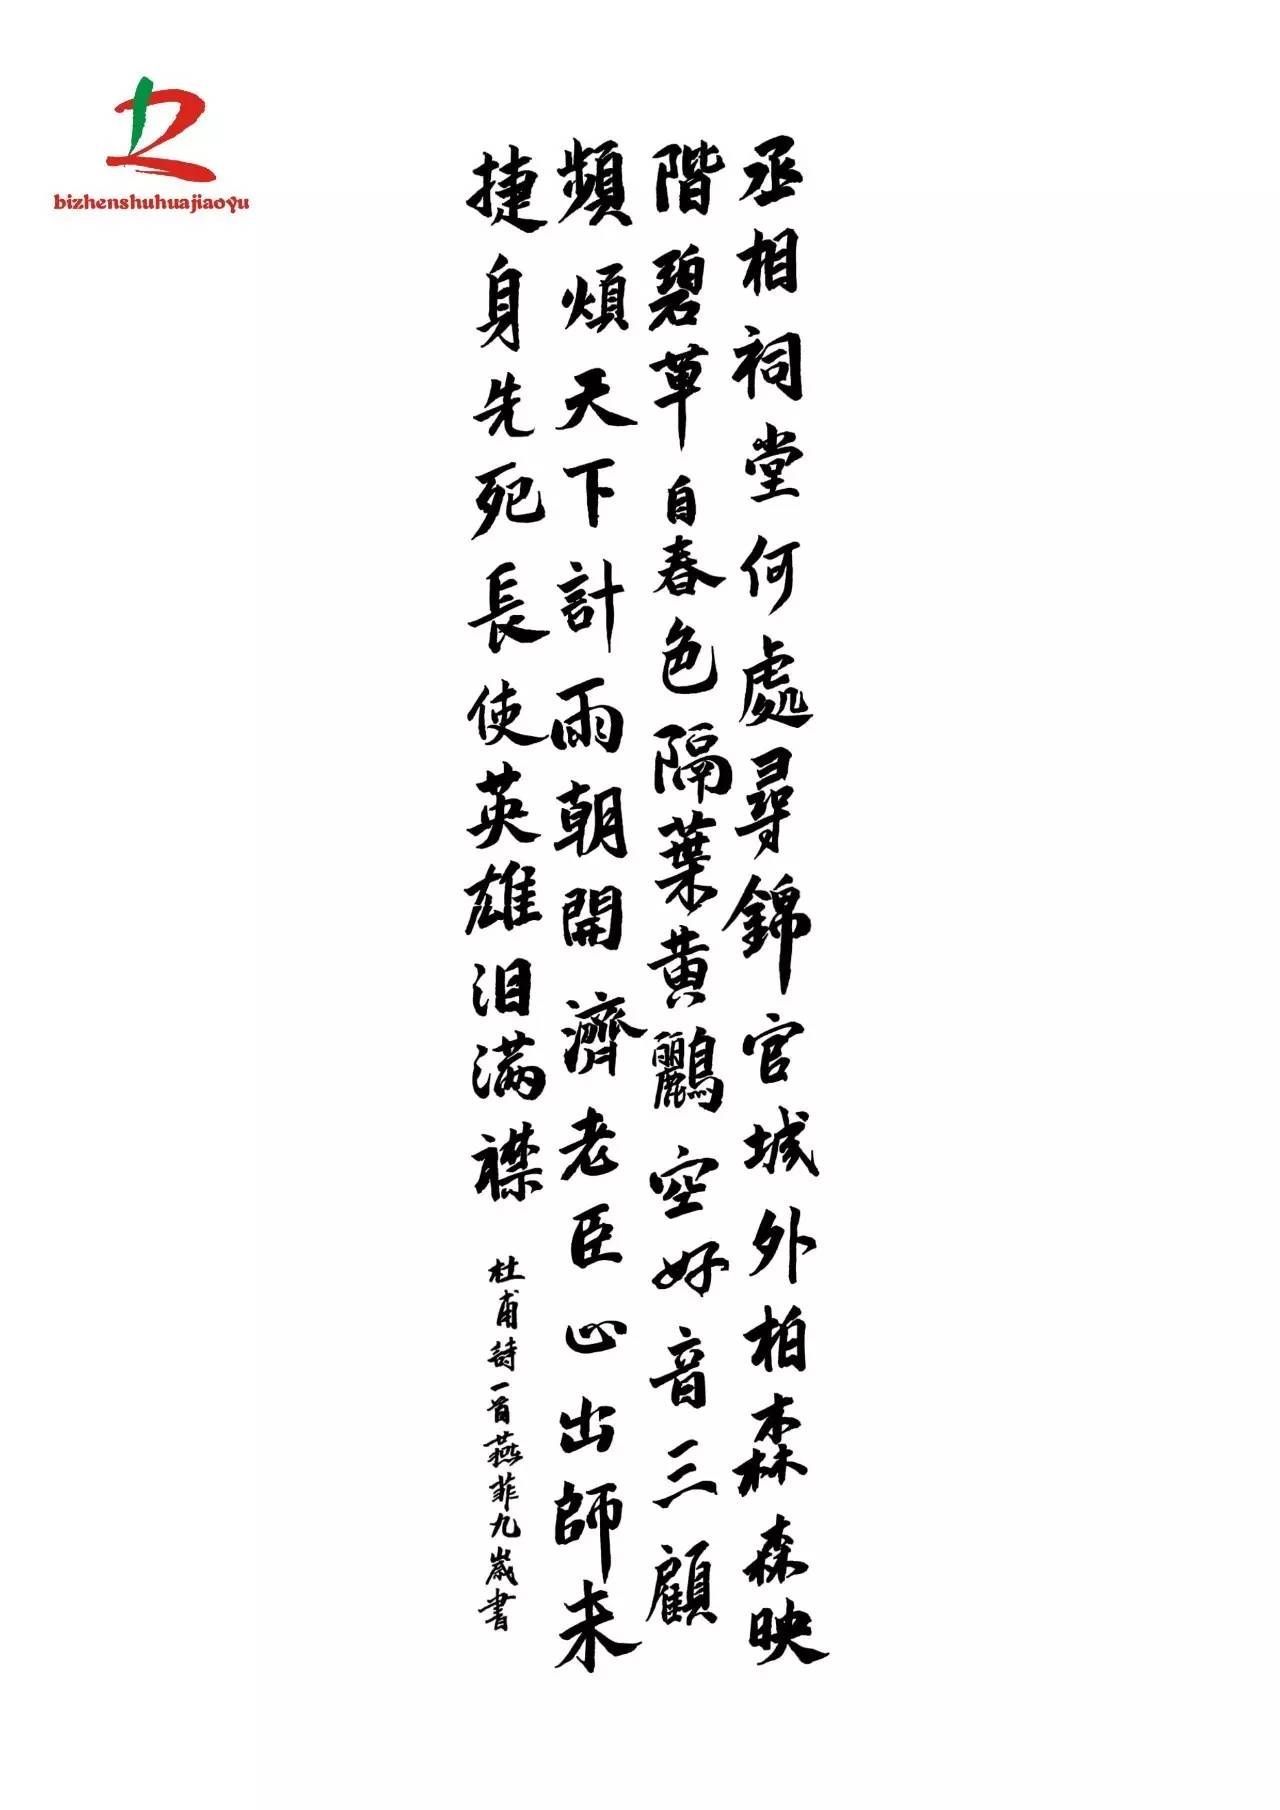 bizhenshuhuajiaoyu
丞相祠堂何處尋錦官城外柏森森映
階碧草自春色隔葉黃鸝空好音三顧
頻煩天下計雨朝開濟老臣心出師未
捷身先死長使英雄泪满襟
杜甫詩一首燕菲九歲書